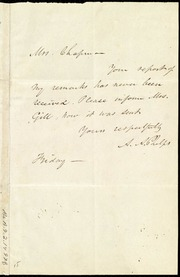 Mrs. Chapman
Your report of
my remarks has never been
received. Please inform Mrs.
Gill, how it was sent.
Yours respectfully
A. A. Phelps
Friday —